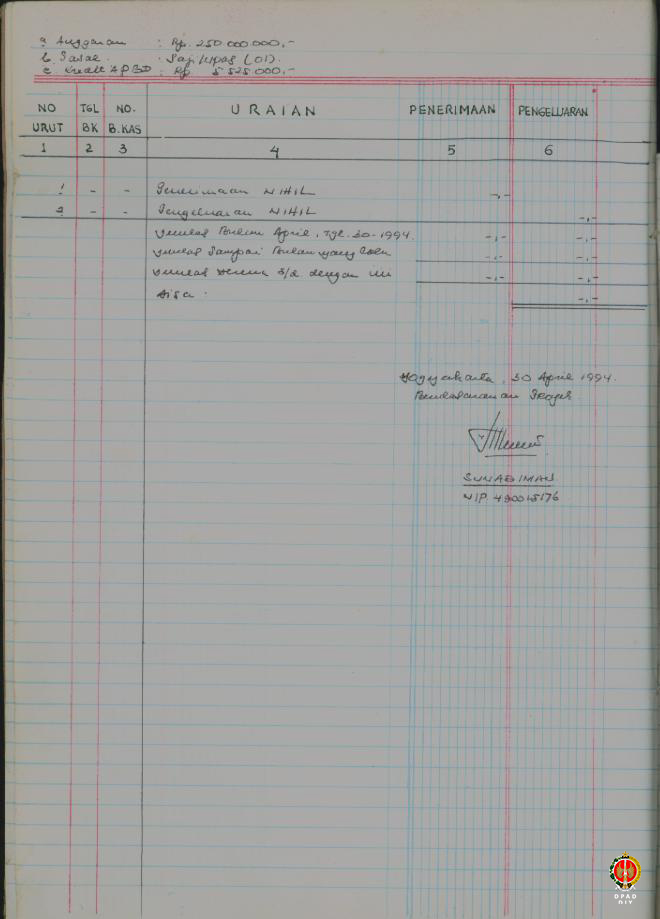 a. Anggaran : Rp. 250.000.000,-
b. Pasal : (01).
c. Kredit APBD : Rp. 5.525.000,-
NO URUT TGL BK NO. B.KAS URAIAN PENERIMAAN PENGELUARAN
1 2 3 4 5 6
1 - - Penerimaan NIHIL -,-
2 - - Pengeluaran NIHIL -,-
Jumlah Bulan April, Tgl. 30-1994. -,- -,-
Jumlah Sampai Bulan yang lalu -,- -,-
Jumlah semua s/d dengan ini -,- -,-
Sisa. -,-
Yogyakarta, 30 April 1994.
NIP.
DPAD
DIY